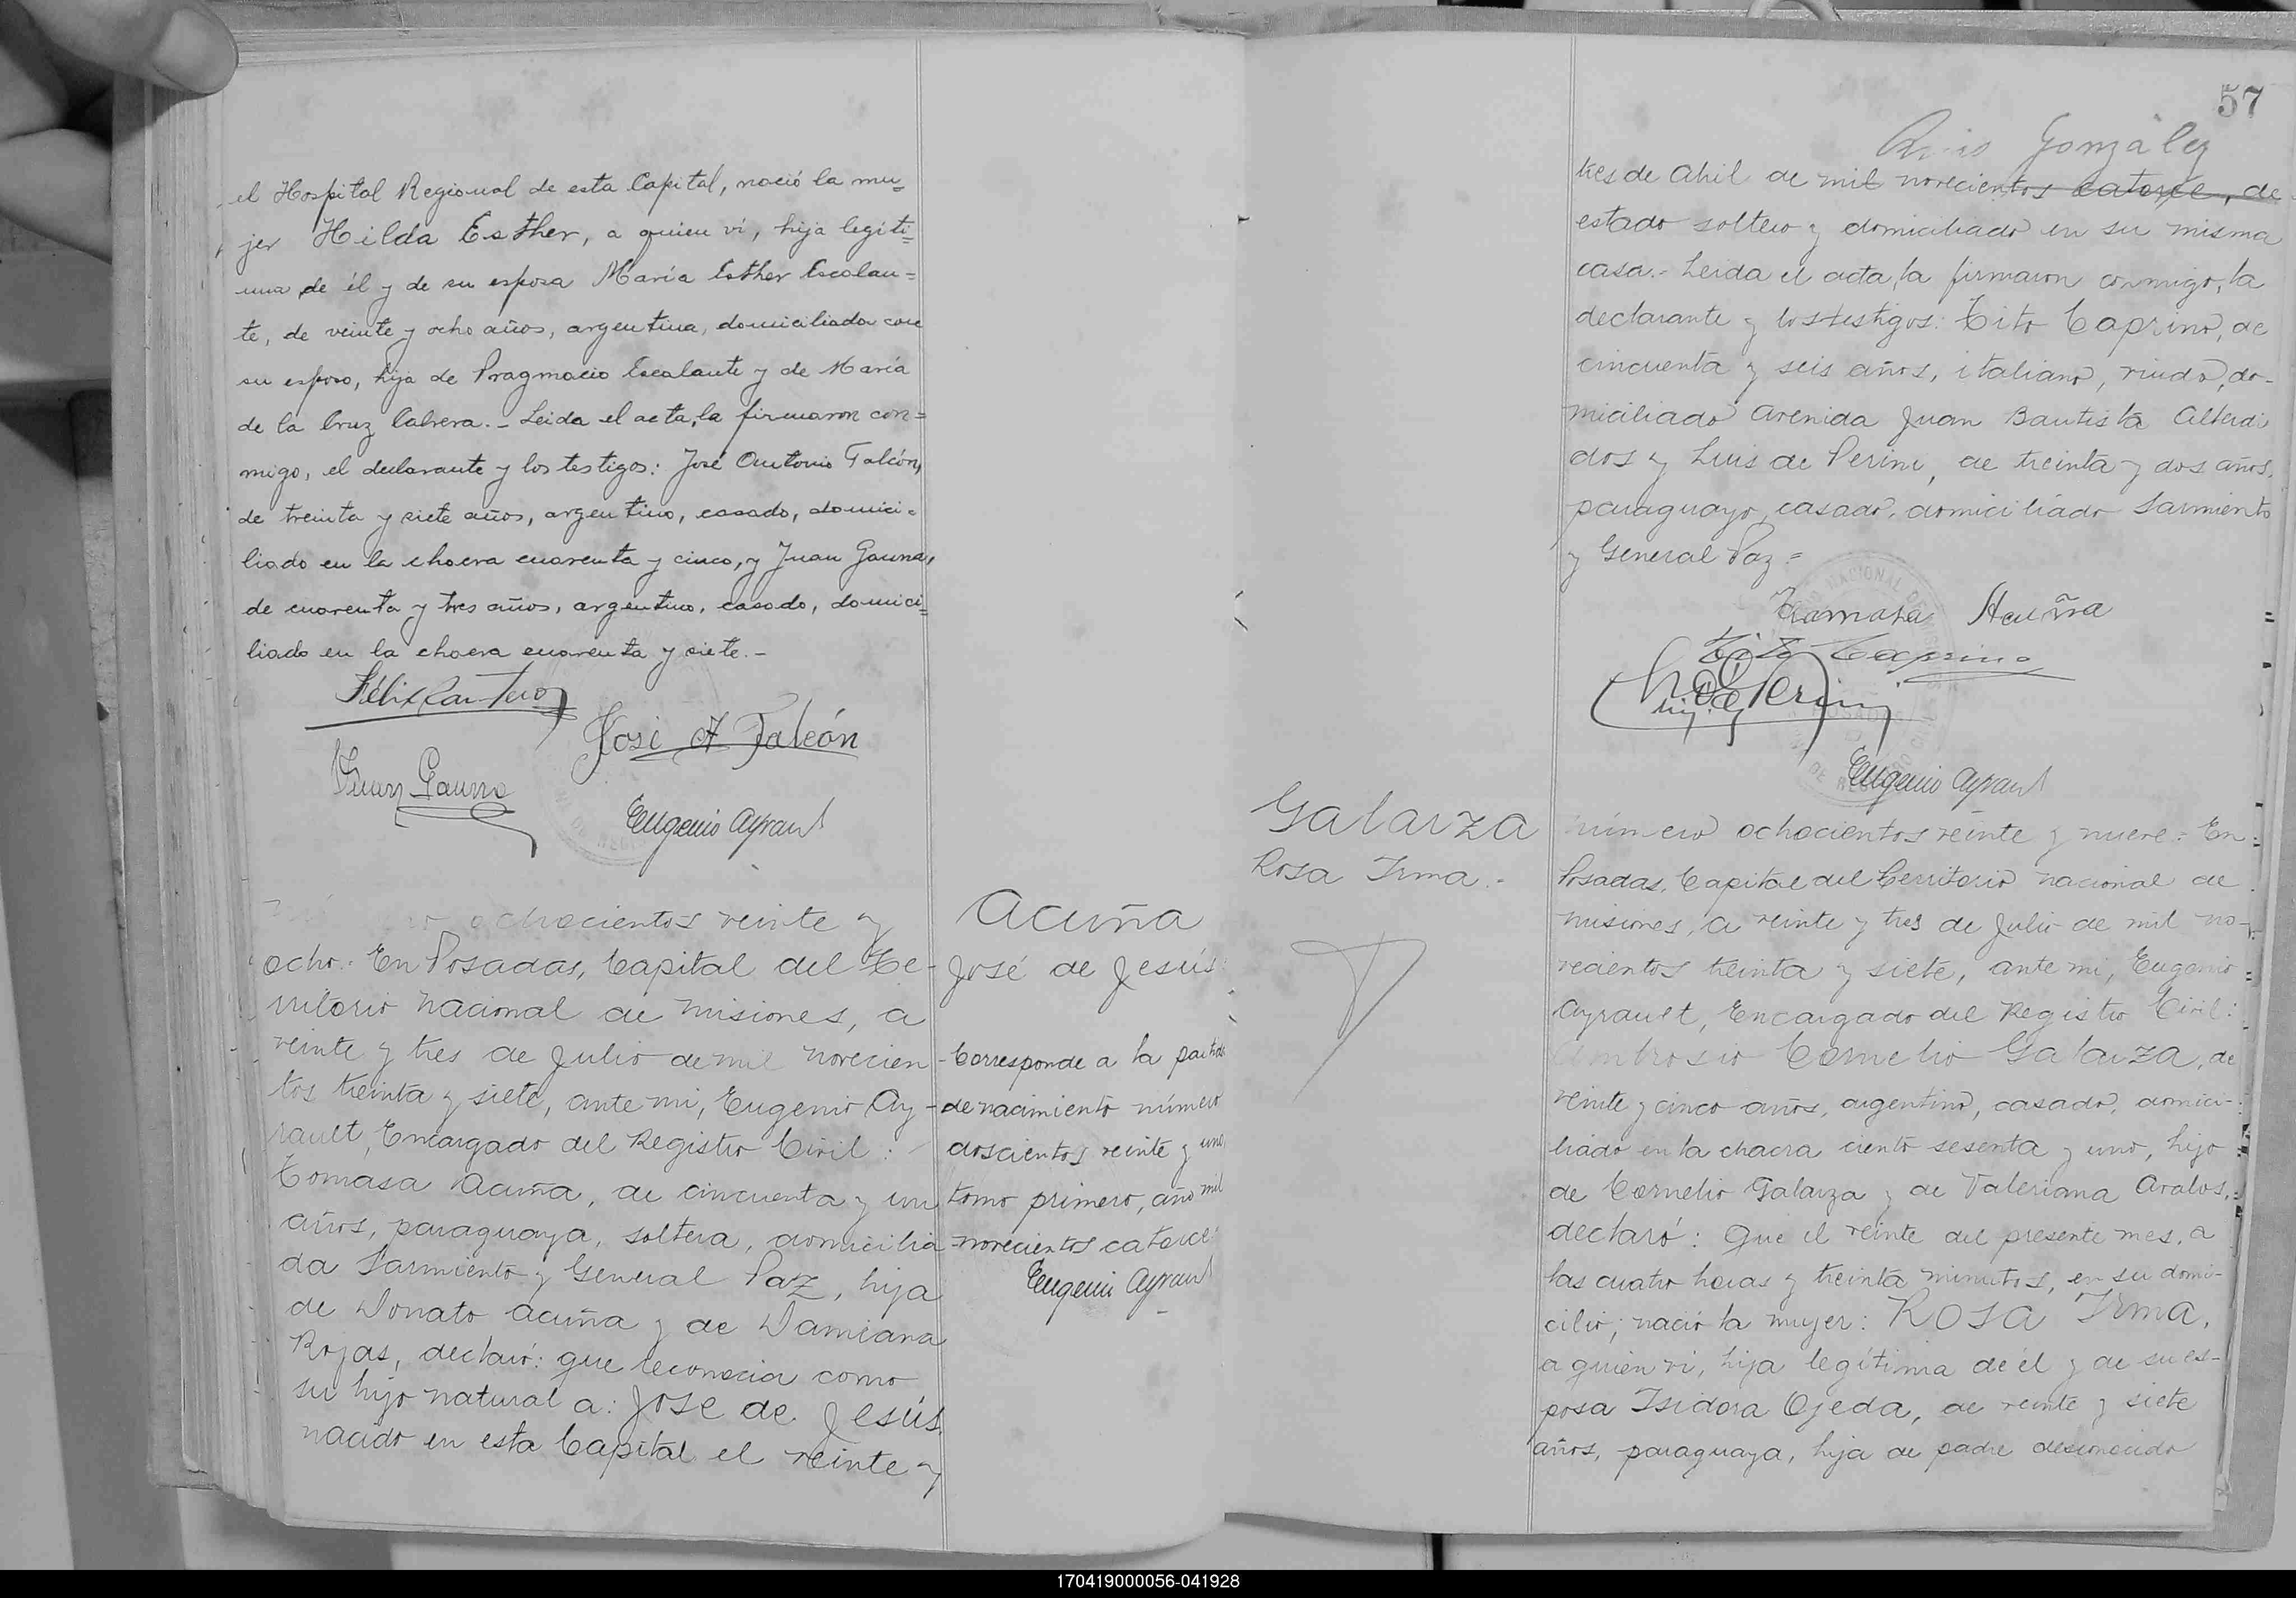 el Hospital Regional de esta Capital, nació la mu=
jer Hilda Esther, a quien ví, hija legíti=
ma de él y de su esposa María Esther Escalan=
te, de veinte y ocho años, argentina, domiciliada con
su esposo, hija de Pragmacio Escalante y de María
de la Cruz Cabrera.- Leida el acta, la firmaron con=
migo, el declarante y los testigos: José Antonio Falcón,
de treinta y siete años, argentino, casado, domici=
liado en la chacra cuarenta y cinco, y Juan Gauna,
de cuarenta y tres años, argentino, casado, domici=
liado en la chacra cuarenta y siete.-
Félix Cantero
José A Falcón
Juan Gauna
Eugenio Ayrault
ochocientos veinte y
ocho.- En Posadas, Capital del Te-
rritorio nacional de misiones, a
veinte y tres de Julio de mil novecien
tos treinta y siete, ante mi, Eugenio Ay-
rault, Encargado del Registro Civil:
Tomasa Acuña, de cincuenta y un
años, paraguaya, soltera, domicilia
da Sarmiento y General Paz, hija
de Donato Acuña y de Damiana
Rojas, declaró: que reconocia como
su hijo natural a: José de Jesús
nacido en esta Capital el veinte y
Acuña
José de Jesús
-Corresponde a la partida
de nacimiento número
doscientos veinte y uno
tomo primero, año mil
novecientos catorce
Eugenio Ayrault
57
González
tres de Abril de mil novecientos catorce, de
estado soltero y domiciliado en su misma
casa.- Leida el acta, la firmaron conmigo, la
declarante y los testigos: Tito Caprino, de
cincuenta y seis años, italiano, viudo, do-
miciliado Avenida Juan Bautista Alberdi
dos y Luis de Perini, de treinta y dos años,
paraguayo, casado, domiciliado Sarmiento
y General Paz=
Tomasa Acuña
Tito Caprino
Luis de Perini
Eugenio Ayrault
Galarza
Rosa Irma.-
número ochocientos veinte y nueve.- En
Posadas, Capital del Territorio nacional de
misiones, a veinte y tres de Julio de mil no-
vecientos treinta y siete, ante mi, Eugenio
Ayrault, Encargado del Registro Civil:
Ambrosio Cornelio Galarza, de
veinte y cinco años, argentino, casado, domici-
liado en la chacra ciento sesenta y uno, hijo
de Cornelio Galarza y de Valeriana Avalos,
declaró: Que el veinte del presente mes, a
las cuatro horas y treinta minutos, en su domi-
cilio; nació la mujer: Rosa Irma,
a quien vi, hija legítima de él y de su es-
posa Isidora Ojeda, de veinte y siete
años, paraguaya, hija de padre desconocido
170419000056-041928